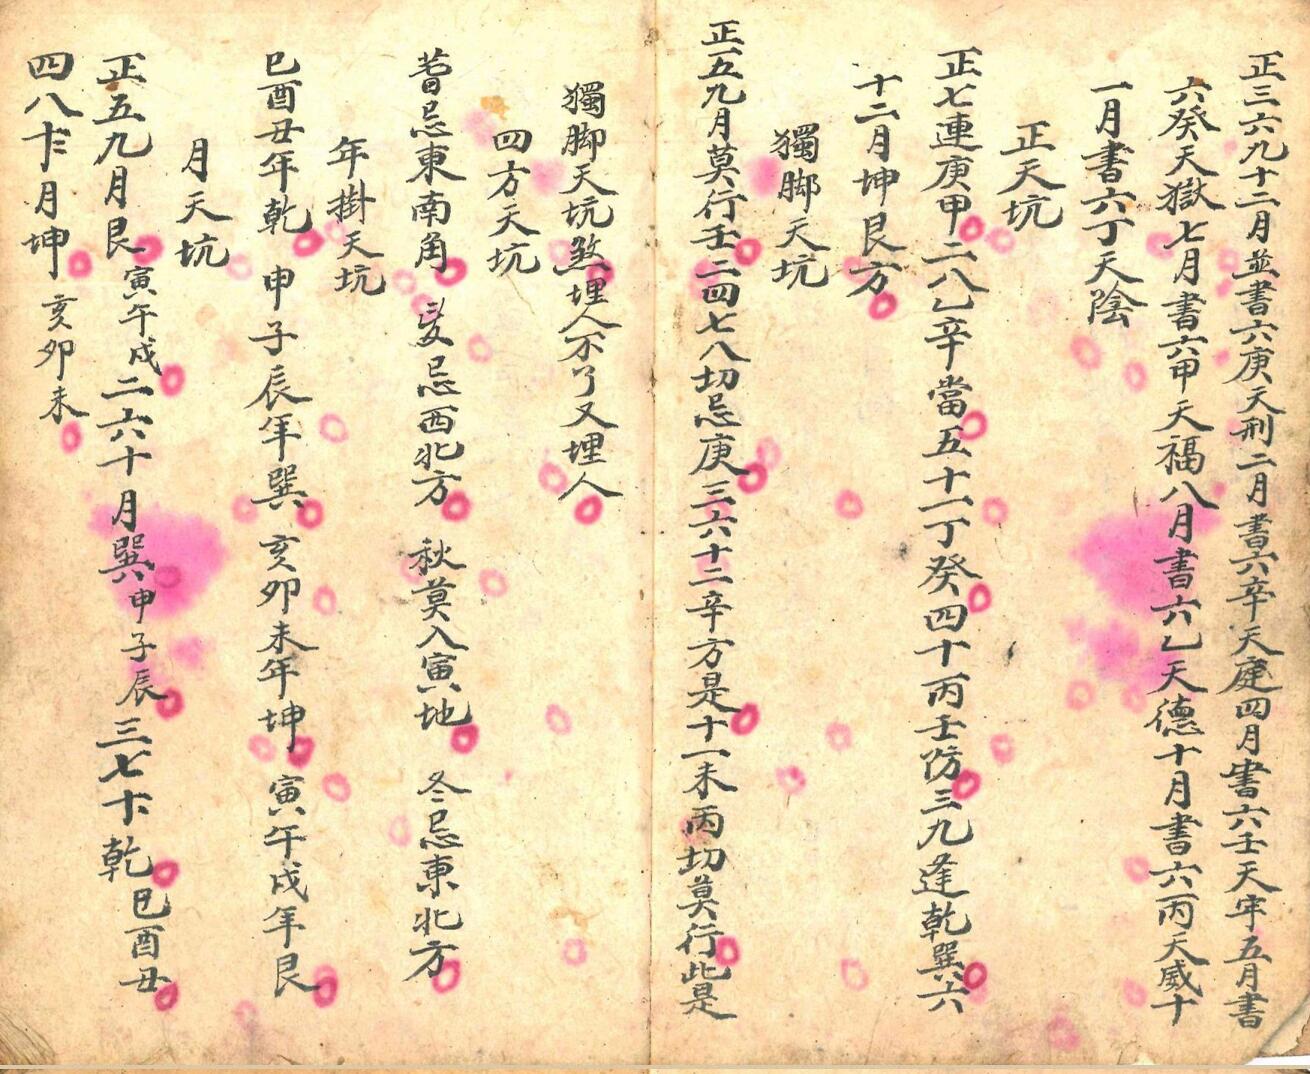 正三六九十二月並書六庚天刑二月書六辛天庭四月書六壬天牢五月書
六癸天獄七月書六甲天福八月書六乙天德十月書六丙天威十
一月書六丁天陰
正天坑
正七連庚甲二八乙辛當五十一丁癸四十丙壬防三九逢乾巽六
十二月坤艮方
獨脚天坑
正五九月莫行壬二四七八切忌庚三六十二辛方是十一未丙切莫行此是
獨脚天坑煞埋人不了又埋人
四方天坑
忌東南角 夏忌西北方 秋莫入寅地 冬忌東北方
年掛天坑
巳酉丑年乾 申子辰年巽 亥卯未年坤 寅午戌年艮
月天坑
正五九月艮寅午戌二六十月巽申子辰三七十乾巳酉丑
四八月坤亥卯未